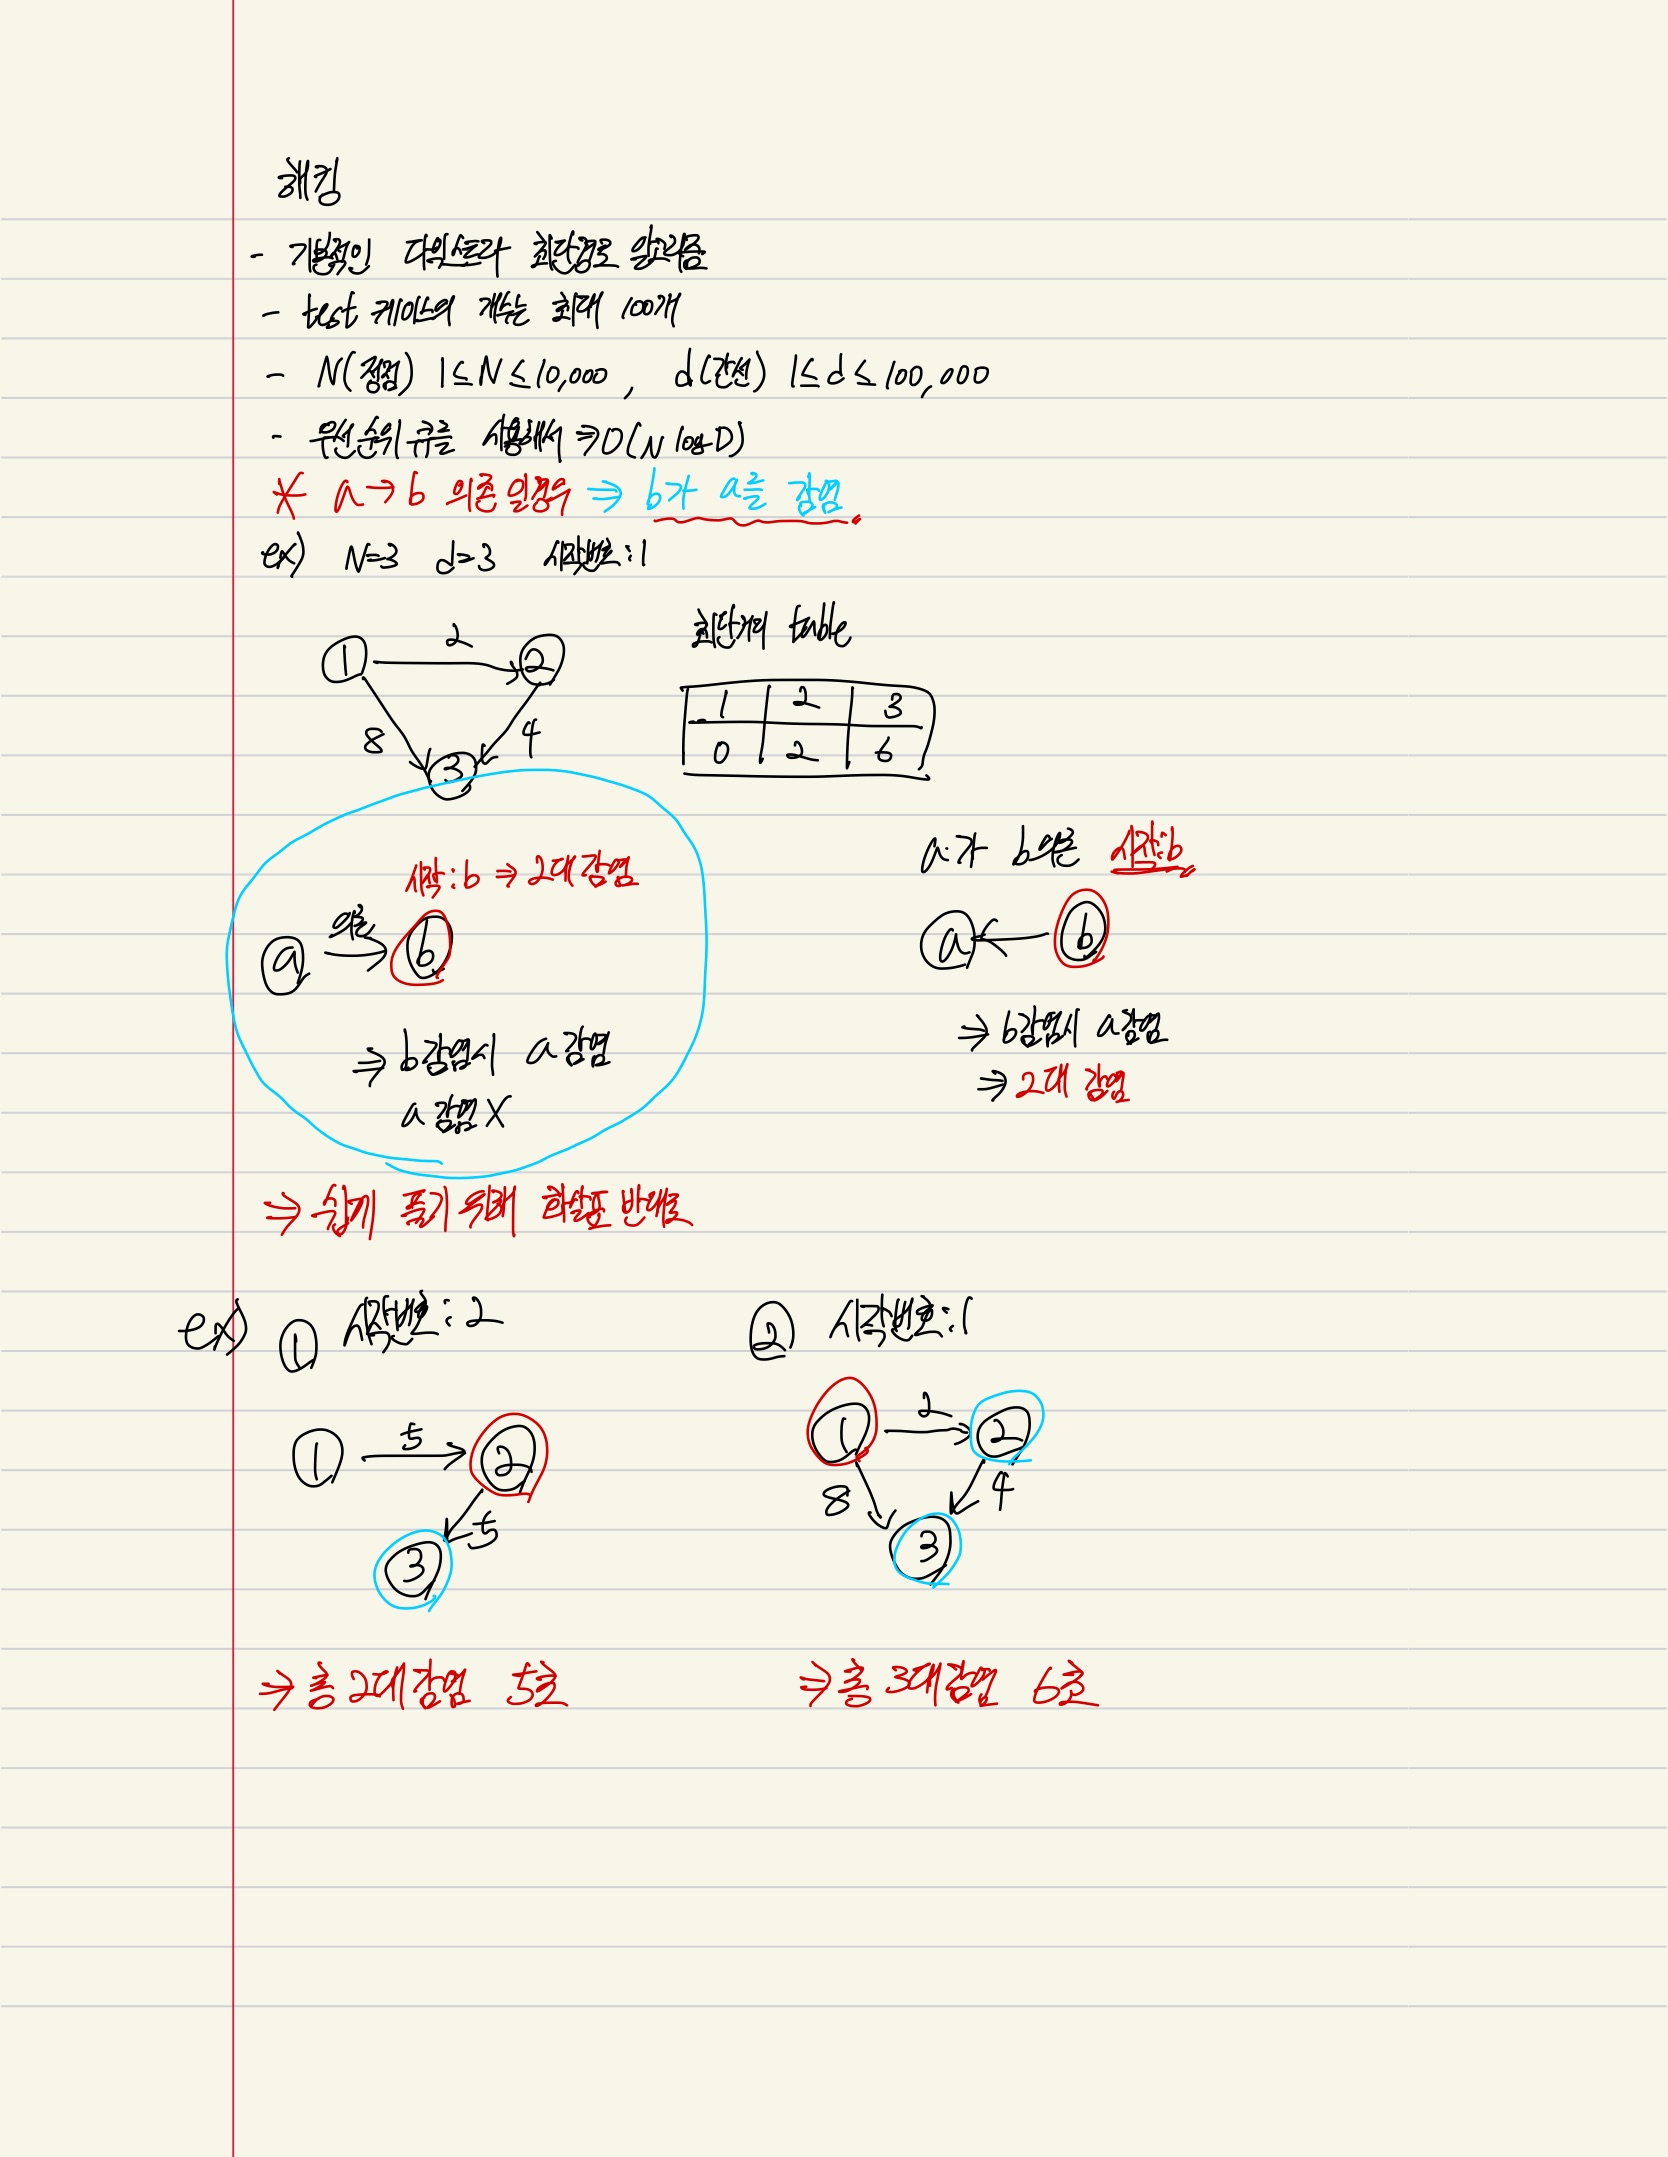 해킹
- 기본적인 다익스트라 최단경로 알고리즘
- test 케이스의 개수는 최대 100개
- N(정점) 1≤N≤10,000, d(간선) 1≤d≤100,000
- 우선순위 큐를 사용해서 ⇒ O(N log D)
* a→b 의존일경우 ⇒ b가 a를 감염.
ex) N=3 d=3 시작번호:1
최단거리 table
1 2 2
8 4
3
1 2 3
0 2 6
시작:b ⇒ 2대 감염
a 의존 b
⇒ b감염시 a감염
a감염 X
a가 b의존 시작:b
a b
⇒ b감염시 a감염
⇒ 2대 감염
⇒ 쉽게 풀기 위해 화살표 반대로
ex) ① 시작번호:2
1 5 2
5
3
⇒ 총 2대 감염 5초
② 시작번호:1
1 2 2
8 4
3
⇒ 총 3대 감염 6초